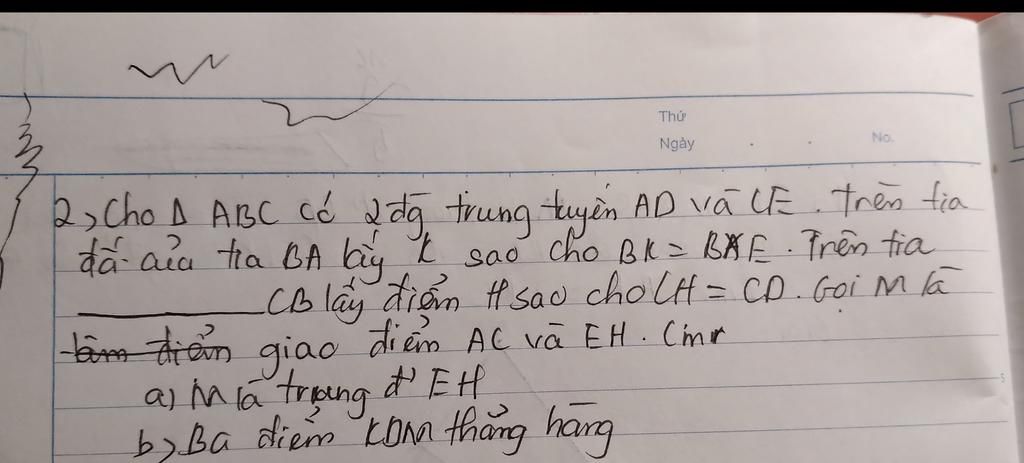 Thứ
Ngày
No.
2, Cho Δ ABC có 2 đg trung tuyến AD và CE. Trên tia
đối của tia BA lấy K sao cho BK = BE. Trên tia
CB lấy điểm H sao cho CH = CD. Gọi M là
giao điểm AC và EH. Cmr
a) M là trung đ' EH
b, Ba điểm KDM thẳng hàng